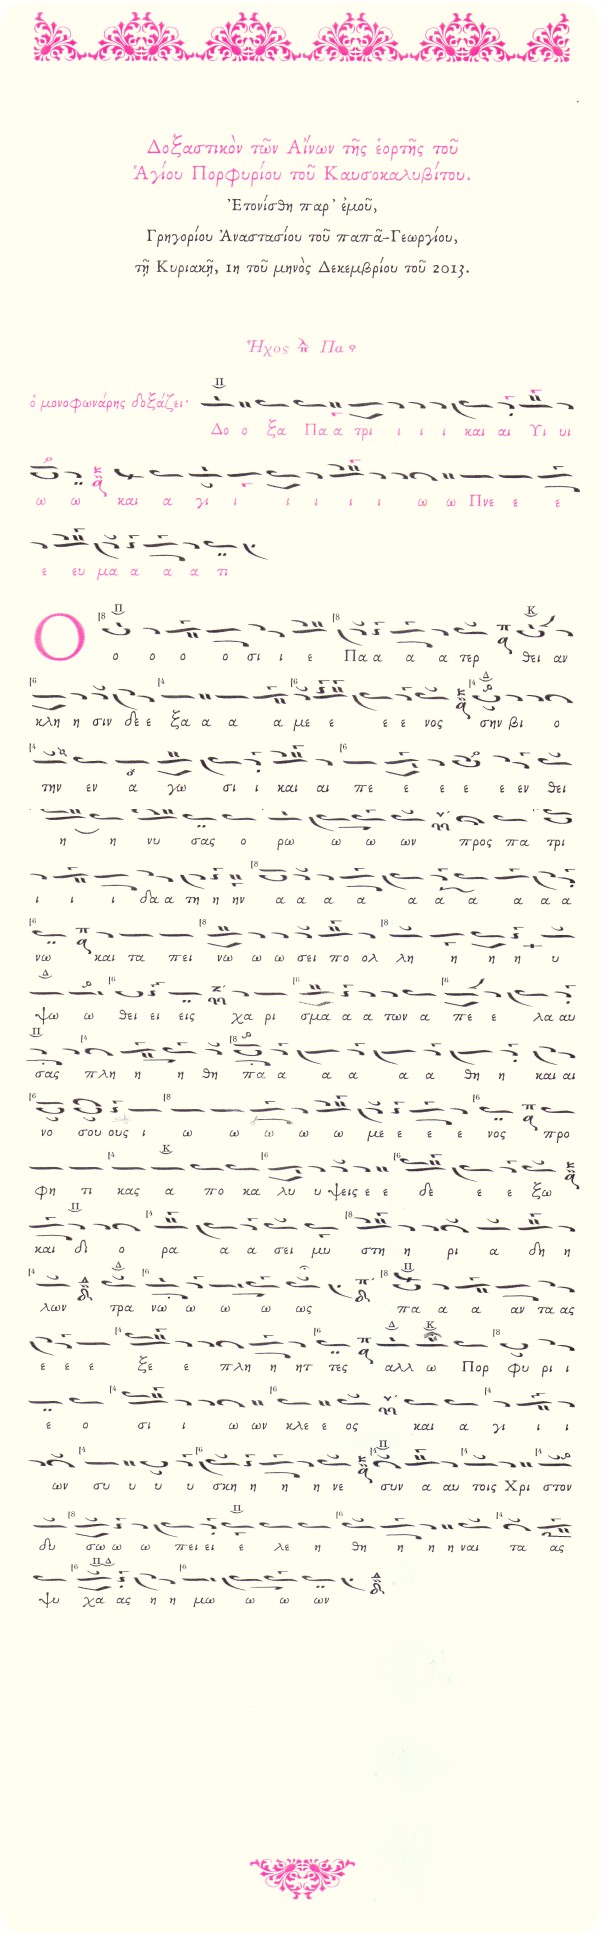 Δοξαστικὸν τῶν Αἴνων τῆς ἑορτῆς τοῦ
Ἁγίου Πορφυρίου τοῦ Καυσοκαλυβίτου.
Ἐτονίσθη παρ' ἐμοῦ,
Γρηγορίου Ἀναστασίου τοῦ παπᾶ-Γεωργίου,
τῇ Κυριακῇ, 1η τοῦ μηνὸς Δεκεμβρίου τοῦ 2013.
Ἦχος Πα
ὁ μονοφωνάρης δοξάζει·
Δο ο ξα Πα α τρι ι ι ι και αι Υι υι
ω ω και α γι ι ι ι ι ι ω ω Πνε ε ε ε
ε ευ μα α α α τι
Ο ο ο ο ο σι ι ε Πα α α α τερ θει αν
κλη η σιν δε ε ξα α α α με ε ε ε νος σην βι ο
την εν α γω σι ι και αι πε ε ε ε ε εν θει
η η νυ σας ο ρω ω ω ων προς πα τρι
ι ι ι δα α τη η ην α α α α α α α α α α
νω και τα πει νω ω ω σει πο ολ λη η η η υ
ψω ω θει ει εις χα ρι σμα α α των α πε ε λα αυ
σας πλη η η θη πα α α α α α θη η και αι
νο σου ους ι ω ω ω ω ω με ε ε ε νος προ
φη τι κας α πο κα λυ υ ψεις ε ε δε ε ε ξω
και δι ο ρα α α σει μυ στη η ρι α δη η
λων τρα νω ω ω ω ως πα α α αν τα ας
ε ε ε ξε ε πλη η ητ τες αλλ ω Πορ φυ ρι ι
ε ο σι ι ω ων κλε ε ος και α γι ι ι
ων συ υ υ υ σκη η η η νε συν α αυ τοις Χρι στον
δυ σω ω ω πει ει ε λε η θη η η ναι τα ας
ψυ χα ας η η μω ω ω ων